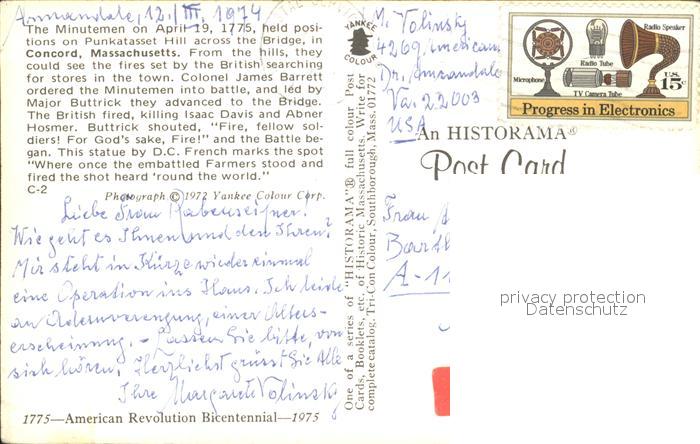 Annandale, 12./III. 1974
The Minutemen on April 19, 1775, held posi-
tions on Punkatasset Hill across the Bridge, in
Concord, Massachusetts. From the hills, they
could see the fires set by the British searching
for stores in the town. Colonel James Barrett
ordered the Minutemen into battle, and led by
Major Buttrick they advanced to the Bridge.
The British fired, killing Isaac Davis and Abner
Hosmer. Buttrick shouted, "Fire, fellow sol-
diers! For God's sake, Fire!" and the Battle be-
gan. This statue by D.C. French marks the spot
"Where once the embattled Farmers stood and
fired the shot heard 'round the world."
C-2
Photograph © 1972 Yankee Colour Corp.
Liebe Frau
Wie geht es Ihnen und den Ihren?
Mir steht in Kürze wieder einmal
eine Operation ins Haus. Ich leide
an Adernverengung, einer Alters-
erscheinung. - Lassen Sie bitte, von
sich hören. Herzlichst grüsst Sie Alle
Ihre Margaret Volinsky
1775—American Revolution Bicentennial—1975
YANKEE
COLOUR
One of a series of "HISTORAMA"® full colour Post
Cards, Booklets, etc., of Historic Massachusetts. Write for
complete catalog. Tri-Con Colour, Southborough, Mass. 01772
M. Volinsky
4269 American
Dr. Annandale
Va. 22003
USA
Radio Speaker
Radio Tube
Microphone
TV Camera Tube
U.S.
15c
Progress in Electronics
An HISTORAMA®
Post Card
Frau
A-11
privacy protection
Datenschutz